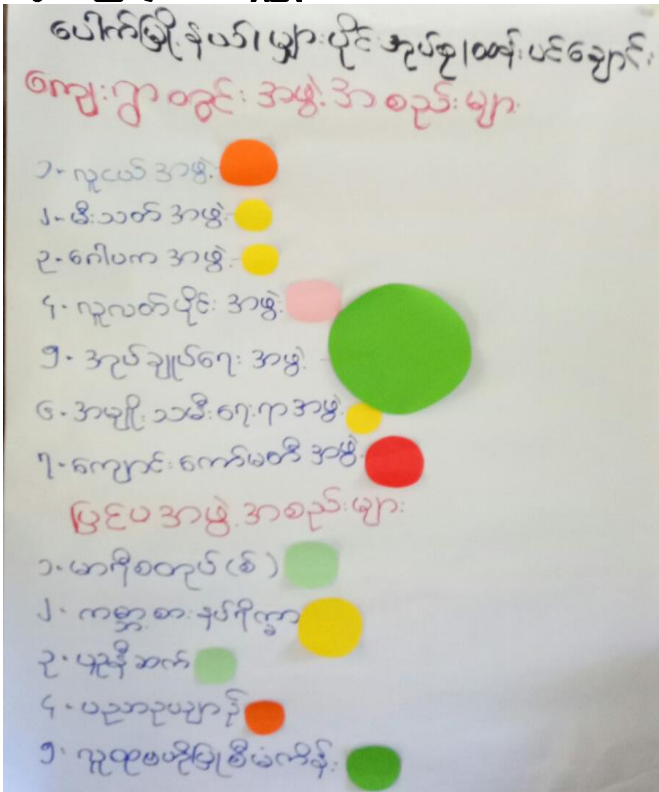 ပေါက်မြို့နယ်၊ မျှားပိုင်အုပ်စု၊ ထန်းပင်ချောင်း
ကျေးရွာတွင်း အဖွဲ့အစည်းများ
၁- လူငယ်အဖွဲ့
၂- မီးသတ်အဖွဲ့
၃- ဂေါပကအဖွဲ့
၄- လူလတ်ပိုင်းအဖွဲ့
၅- အုပ်ချုပ်ရေးအဖွဲ့
၆- အမျိုးသမီးရေးရာအဖွဲ့
၇- ကျောင်းကော်မတီအဖွဲ့
ပြင်ပအဖွဲ့အစည်းများ
၁- မာရီစတုပ်(စ်)
၂- ကမ္ဘာ့စားနပ်ရိက္ခာ
၃- ယူနီဆက်
၄- ပညာဥယျာဉ်
၅- လူထုဗဟိုပြုစီမံကိန်း